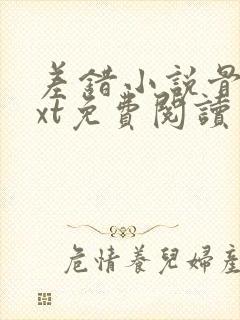 差錯小說骨
xt免費閱讀
危情養兒婦產